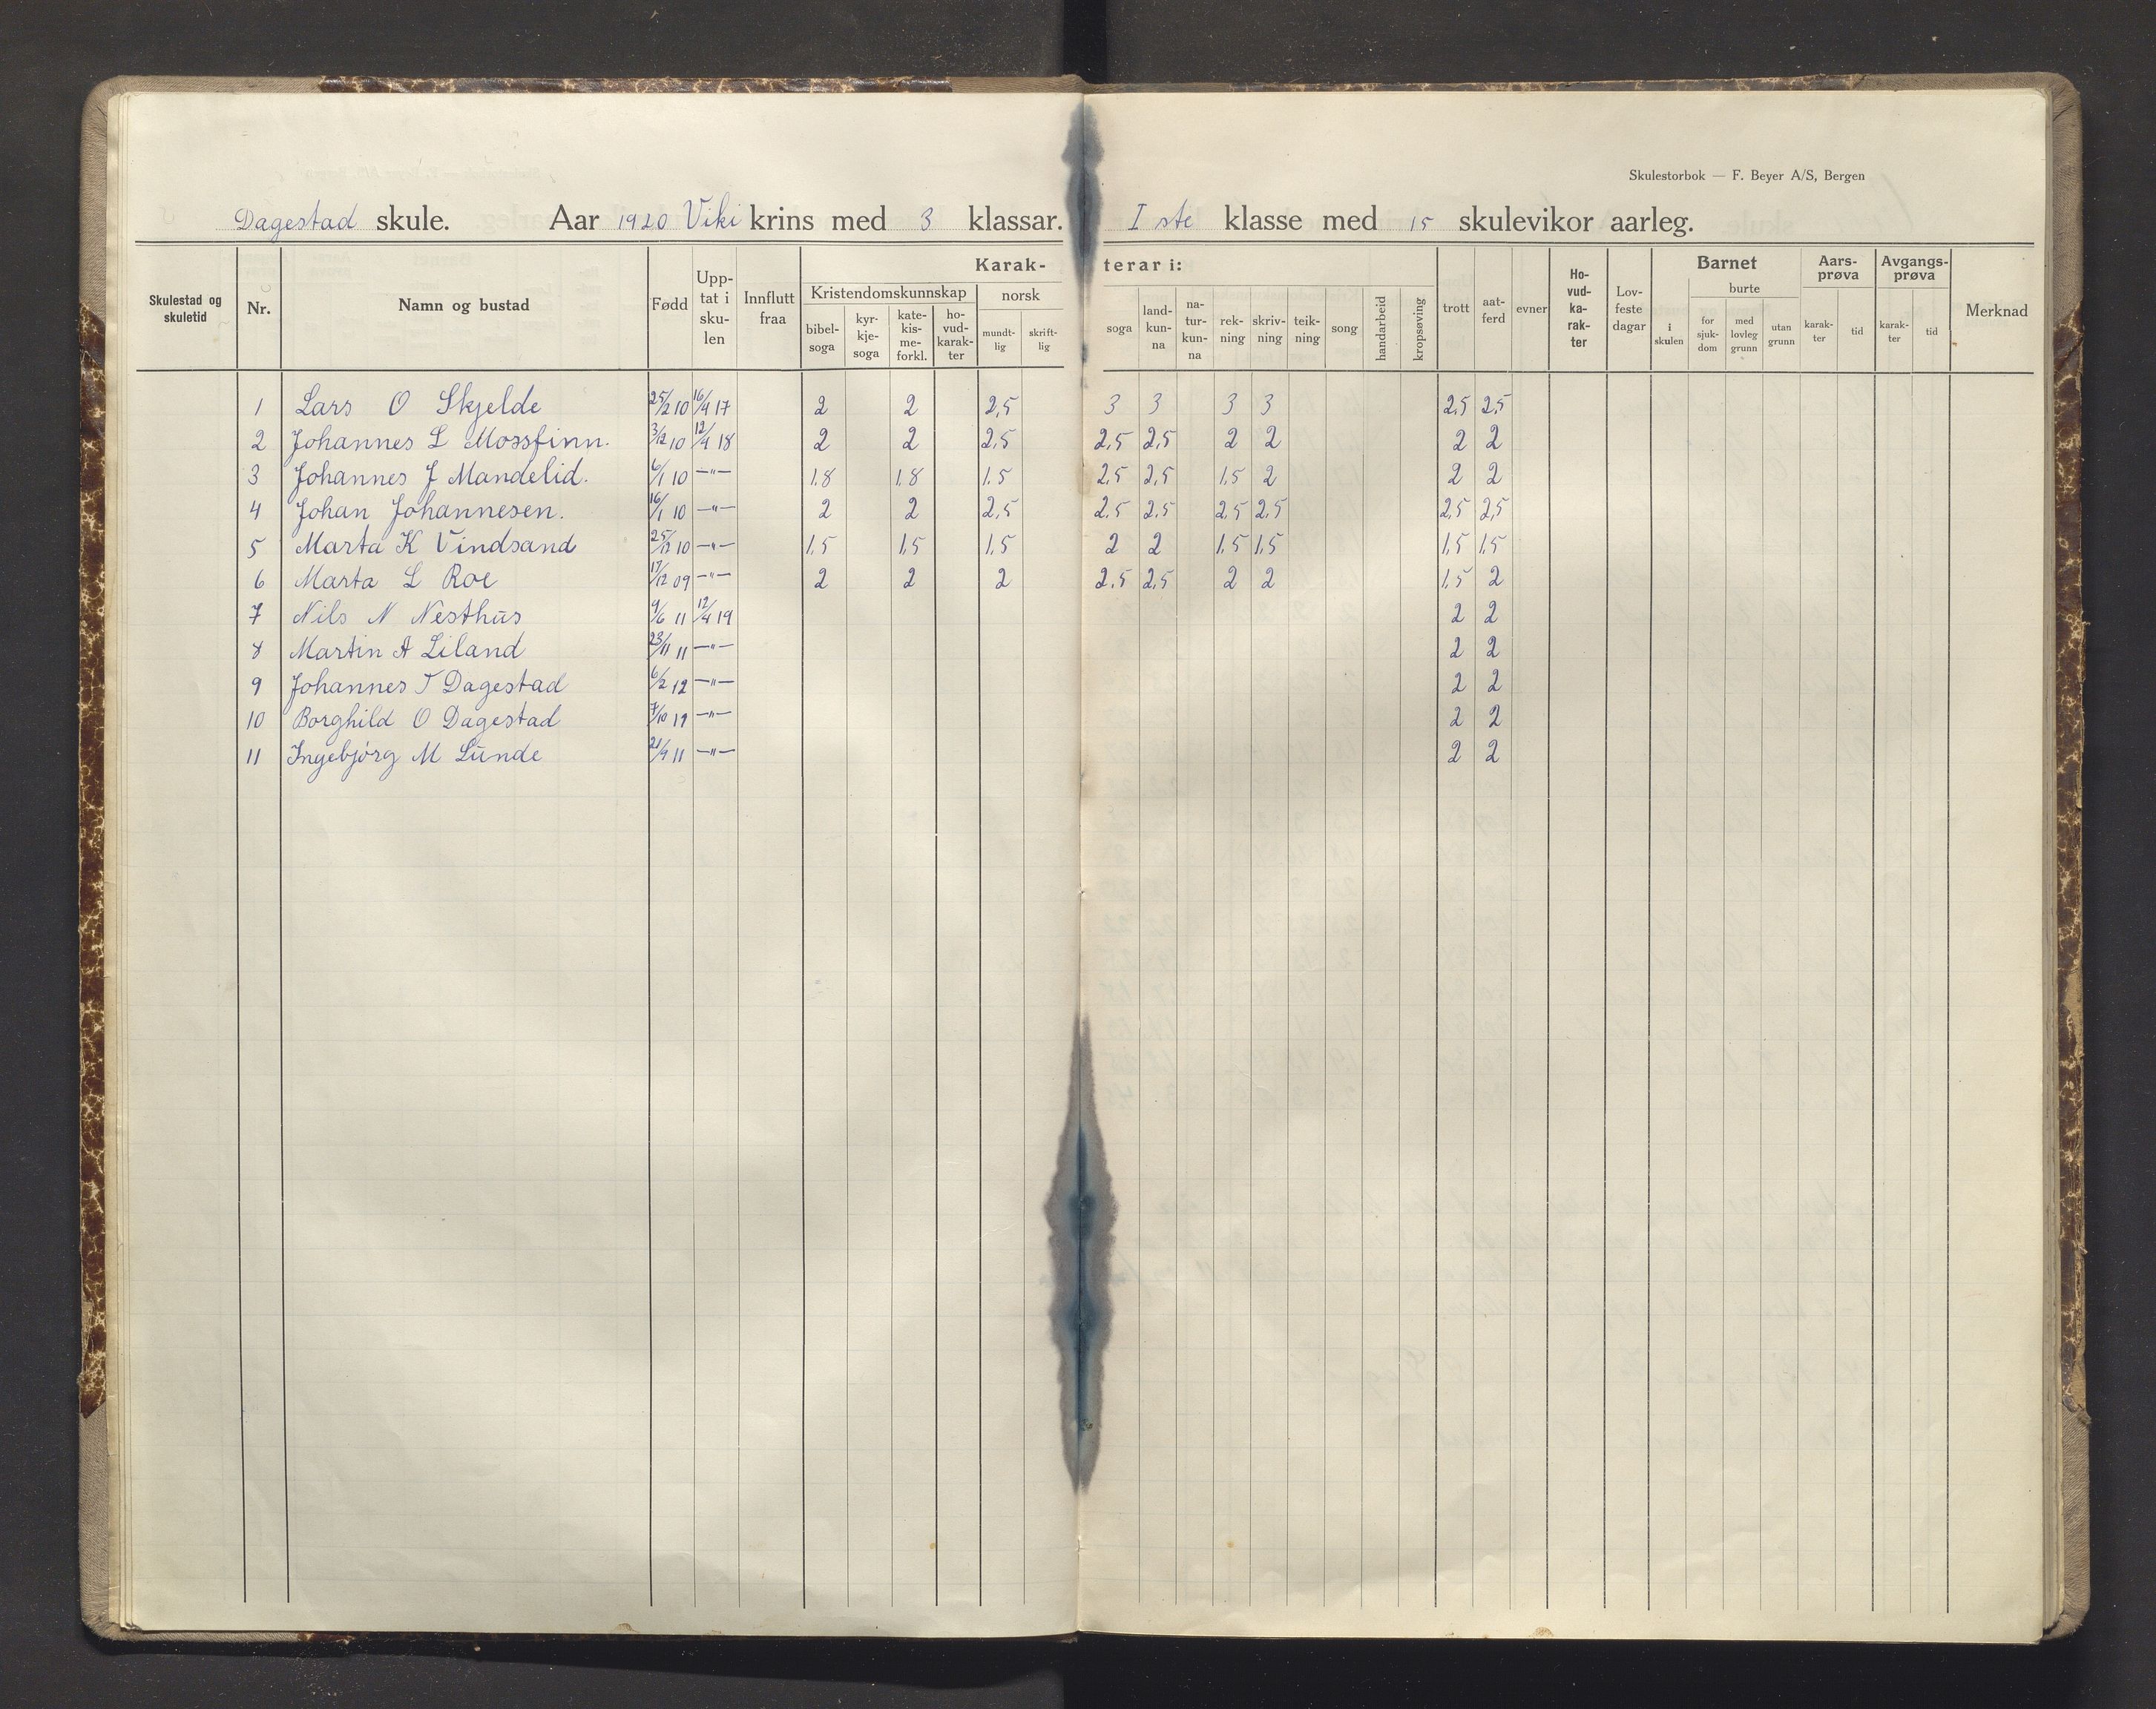 Skulestorbok — F. Beyer A/S, Bergen
Dagestad skule. Aar 1920 Viki krins med 3 klassar. I ste klasse med 15 skulevikor aarleg.
Skulestad og skuletid
Nr.
Namn og bustad
Fødd
Upp-tat i sku-len
Innflutt fraa
Karak-terar i:
Kristendomskunnskap
bibel-soga
kyr-kje-soga
kate-kis-me-forkl.
ho-vud-karak-ter
norsk
mundt-lig
skrift-lig
soga
land-kun-na
na-tur-kun-na
rek-ning
skriv-ning
teik-ning
song
handarbeid
kropsøving
trott
aat-ferd
evner
Ho-vud-ka-rak-ter
Lov-feste dagar
Barnet
i skulen
burte
for sjuk-dom
med lovleg grunn
utan grunn
Aars-prøva
karak-ter
tid
Avgangs-prøva
karak-ter
tid
Merknad
1 Lars O Skjelde 25/2 10 16/4 17 2 2 2,5 3 3 3 3 2,5 2,5
2 Johannes L Mossfinn. 3/12 10 12/4 18 2 2 2,5 2,5 2,5 2 2 2 2
3 Johannes J Mandelid. 6/1 10 —"— 1,8 1,8 1,5 2,5 2,5 1,5 2 2 2
4 Johan Johannesen. 16/1 10 —"— 2 2 2,5 2,5 2,5 2,5 2,5 2,5 2,5
5 Marta K Vindsand 25/12 10 —"— 1,5 1,5 1,5 2 2 1,5 1,5 1,5 1,5
6 Marta L Roe 17/12 09 —"— 2 2 2 2,5 2,5 2 2 1,5 2
7 Nils N Nesthus 9/6 11 12/4 19 2 2
8 Martin A Liland 23/11 11 —"— 2 2
9 Johannes T Dagestad 6/2 12 —"— 2 2
10 Borghild O Dagestad 7/10 —"— 2 2
11 Ingebjørg M Lunde 21/9 11 —"— 2 2